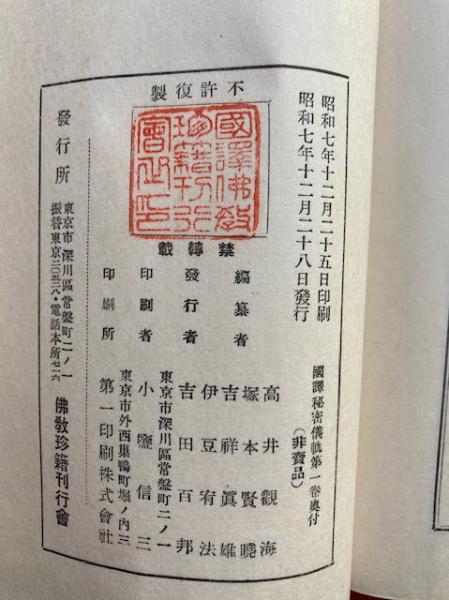 昭和七年十二月二十五日印刷
昭和七年十二月二十八日發行
國譯秘密儀軌第一卷奥付
(非賣品)
不許復製
國譯佛教
珍籍刊行
會之印
禁轉載
編纂者
高井觀海
塚本賢曉
吉祥眞雄
伊豆宥法
發行者
東京市深川區常盤町二ノ一
吉田百邦
印刷者
小鹽信三
東京市外西巢鴨町堀ノ内三
印刷所
第一印刷株式會社
發行所
東京市深川區常盤町二ノ一
佛敎珍籍刊行會